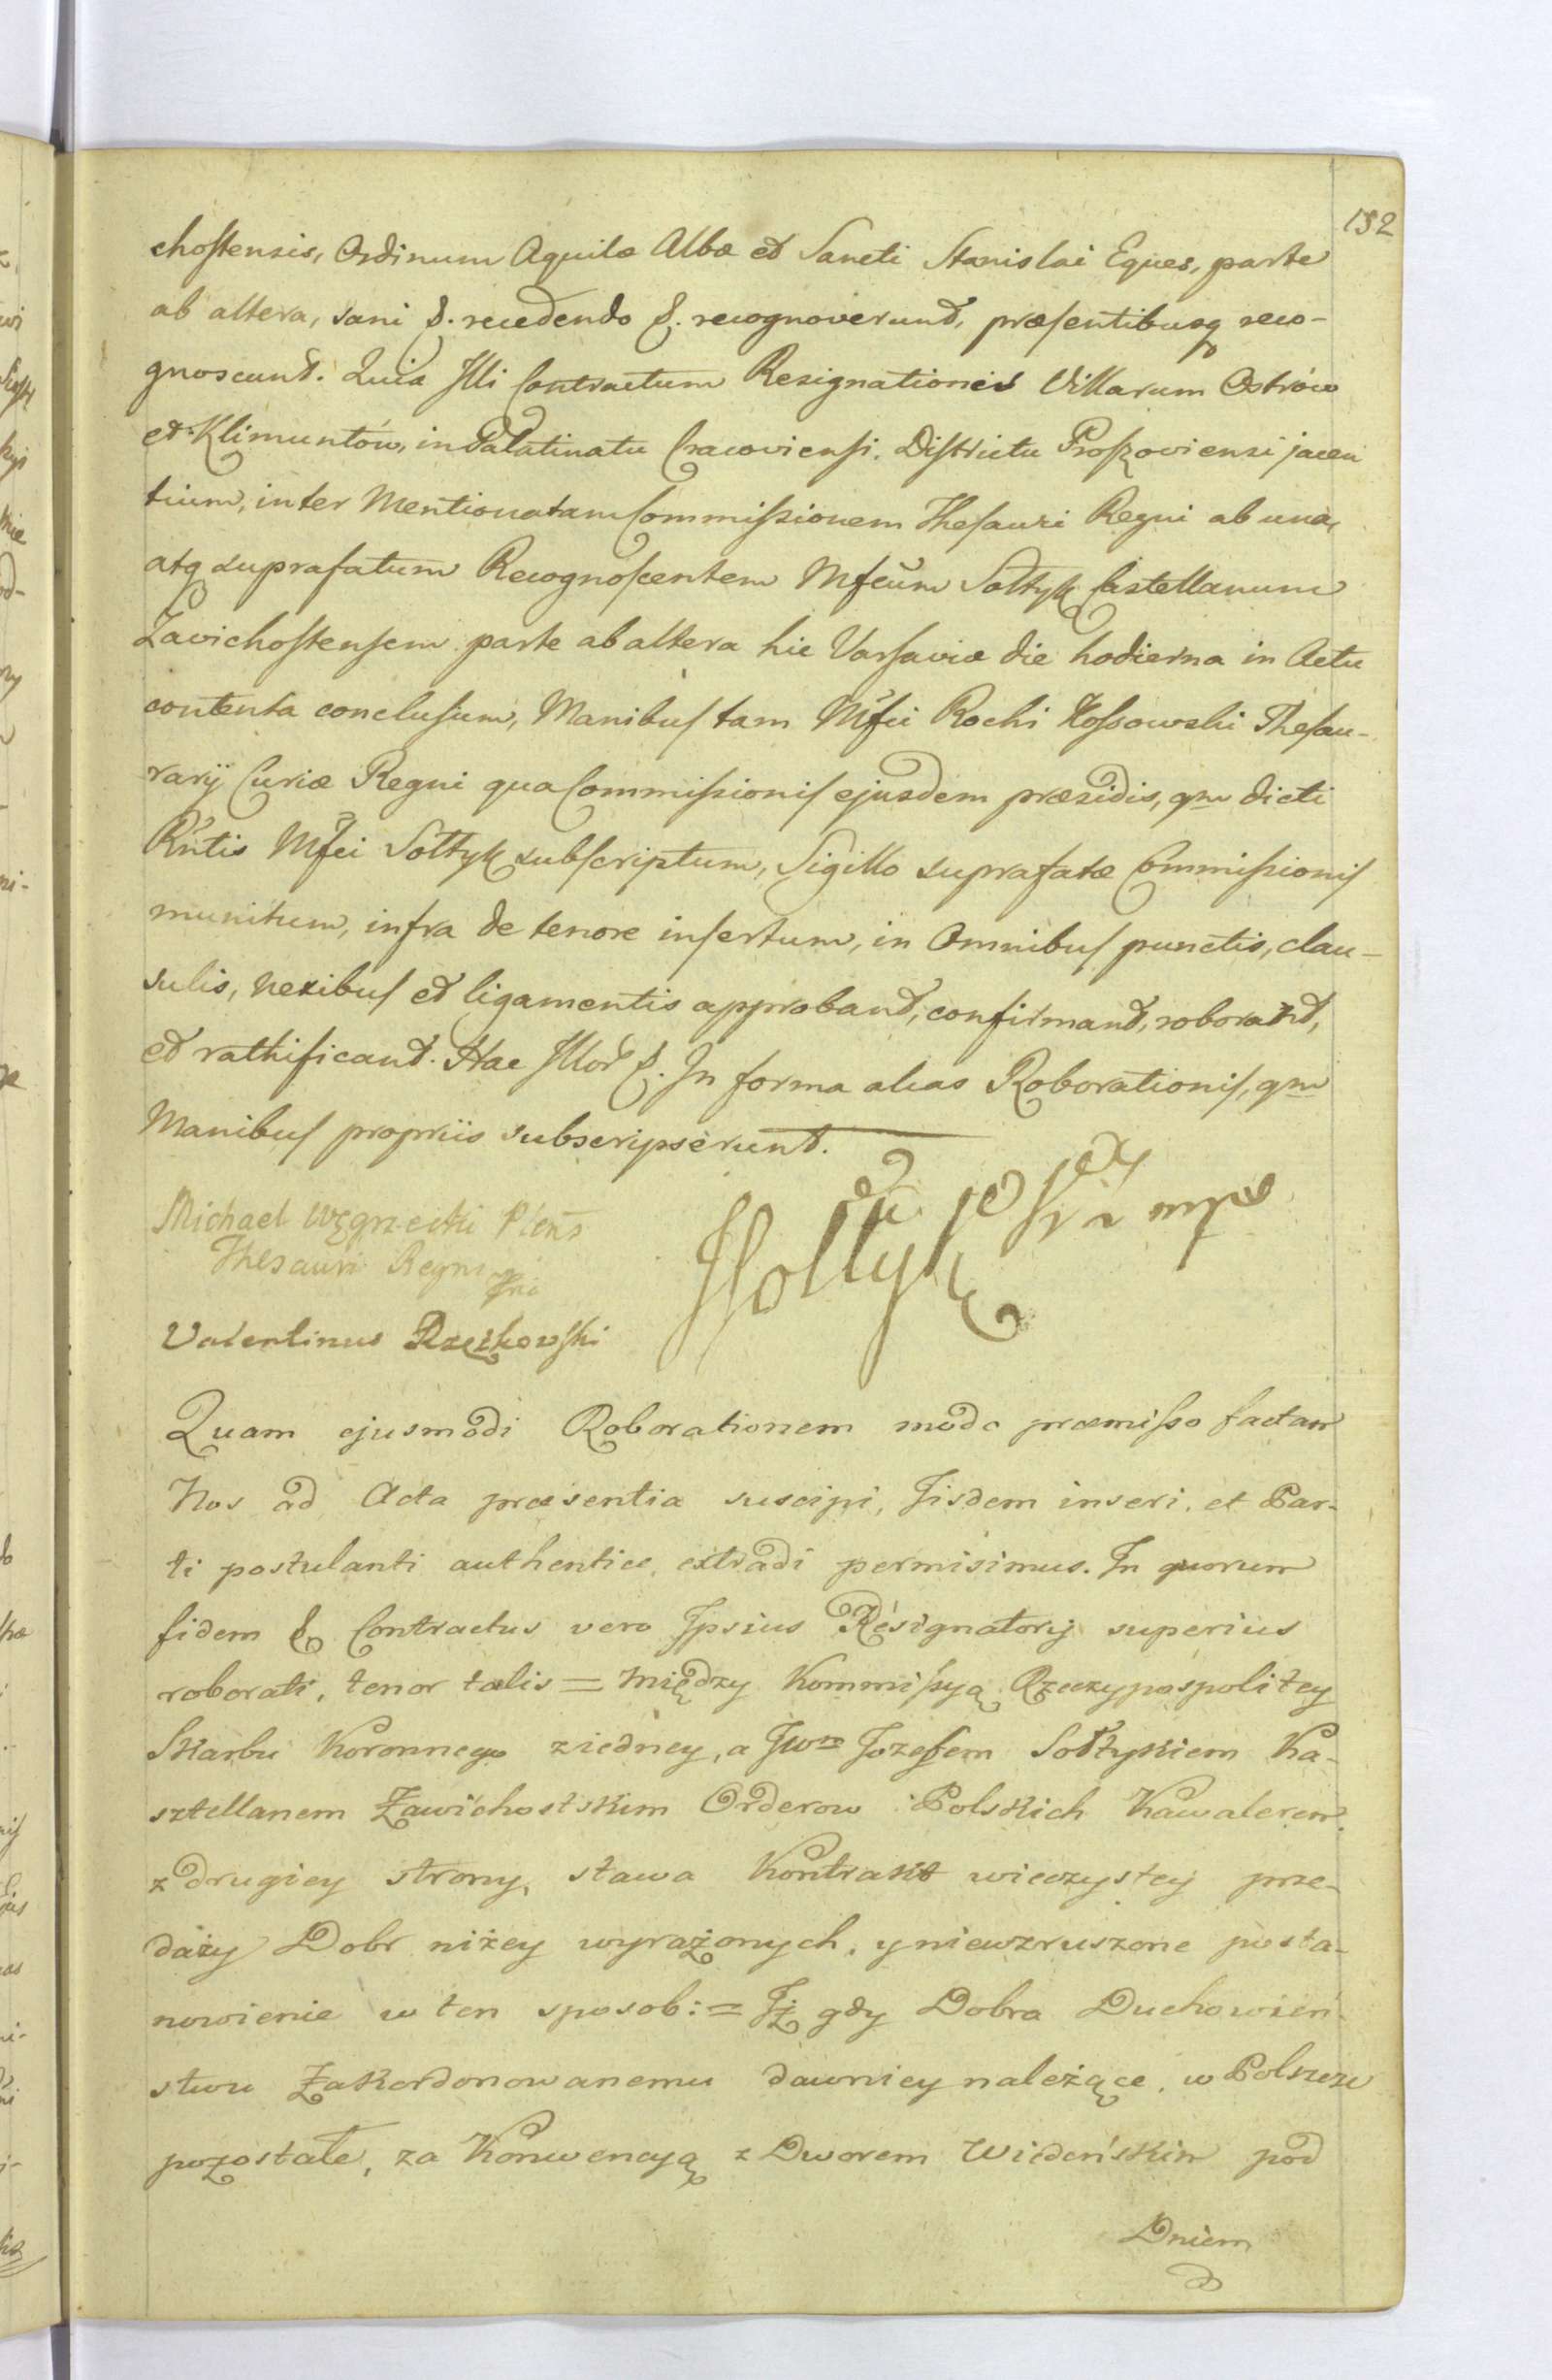 182
chostensis, Ordinum Aquilæ Albæ et Sancti Stanislai Eques, parte
ab altera, sani &. recedendo &. recognoverunt, præsentibusq reco-
gnoscunt. Quia Illi Contractum Resignationis Villarum Ostrów
et Klimuntów, in Palatinatu Cracoviensi, Districtu Proszoviensi jacen
tium, inter Mentionatam Commissionem Thesauri Regni ab una,
atq suprafatum Recognoscentem Mfcum Sołtyk Castellanum
Zavichostensem parte ab altera hic Varsaviæ die hodierna in Actu
contenta conclusum, Manibus tam Mfci Rochi Kossowski Thesau-
rarij Curiæ Regni qua Commissionis ejusdem præsidis, qm dicti
Rntis Mfci Sołtyk subscriptum, Sigillo suprafatæ Commissionis
munitum, infra de tenore insertum, in Omnibus punctis, clau-
sulis, nexibus et ligamentis approbant, confirmant, roborant,
et rathificant. Hac Illor &. In forma alias Roborationis, qm
Manibus propriis subscripserunt.
Michael Węgrzecki Plens
Thesauri Regni
Sołtyk mp
Valentinus Rzęzkowski
Quam ejusmodi Roborationem modo præmisso factam
Nos ad Acta præsentia suscipi, Iisdem inseri, et Par-
ti postulanti authentice extradi permisimus. In quorum
fidem & Contractus vero Ipsius Résignatorij superius
roborati, tenor talis = między Kommissyą Rzeczypospolitey
Skarbu Koronnego ziedney, a Jwm Jozefem Sołtykiem Ka-
sztellanem Zawichostskim Orderow Polskich Kawalerem
z drugiey strony, stawa Kontrakt wieczystey prze-
daży Dobr niżey wyrażonych, y niewzruszone posta-
nowienie w ten sposob: = Iż gdy Dobra Duchowień-
stwu Zakordonowanemu dawniey należące, w Polszcze
pozostałe, za Konwencyą z Dworem Wiedeńskim pod
Dniem